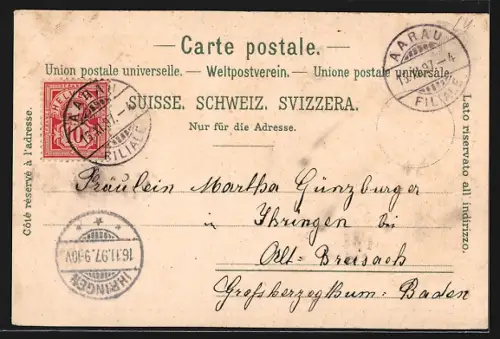 — Carte postale. —
Union postale universelle. — Weltpostverein. — Unione postale universale.
SUISSE. SCHWEIZ. SVIZZERA.
Nur für die Adresse.
Côté réservé à l'adresse.
Lato riservato all indirizzo.
AARAU
FILIALE
AARAU
FILIALE
10
Fräulein Martha Günzburger
Ihringen bei
Alt-Breisach
Grossherzogthum-Baden
IHRINGEN
16.11.97.9-10V.